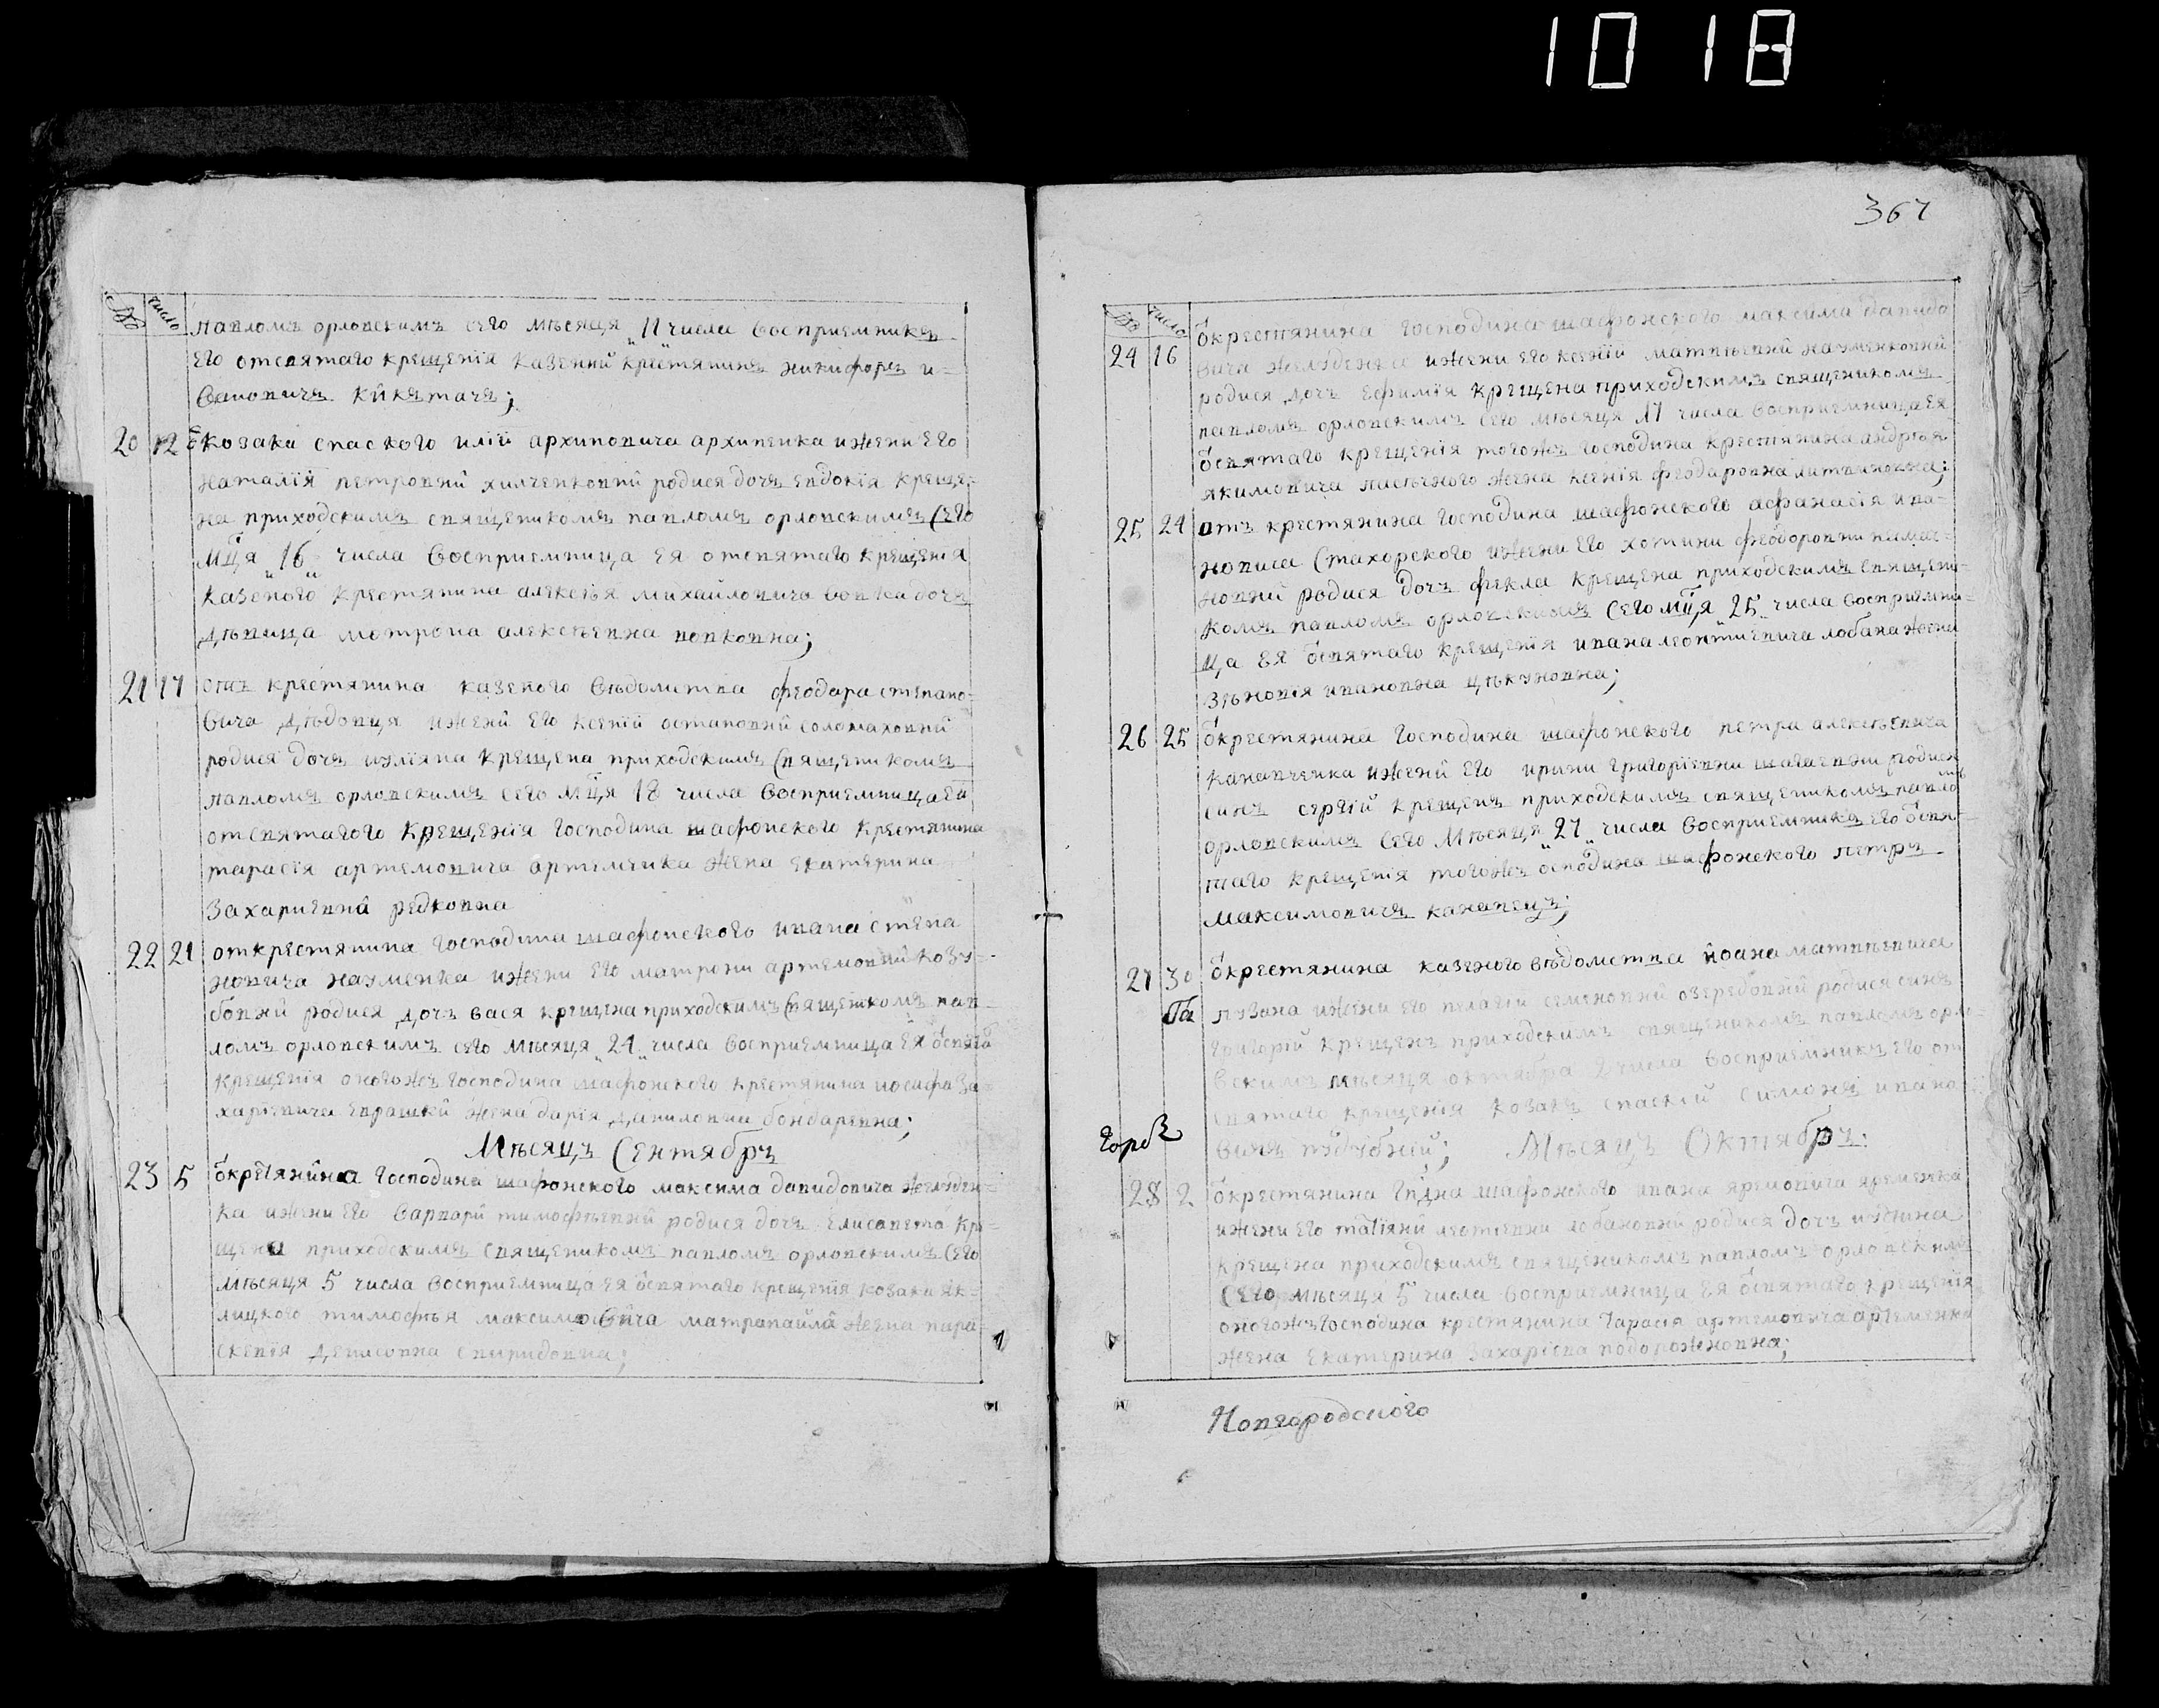 1018
367
№ число
павломъ орловскимъ сего мѣсяця 11 числа восприемникъ
его отсвятаго крещенія казений крестянинъ никифоръ и=
вановичъ
20 12 ѿкозака спаского илій архиповича архипенка ижени его
наталїи петровни родися дочъ евдокія креще=
на приходскимъ священикомъ павломъ орловскимъ сего
мця 16 числа восприемница ея отсвятаго крещенія
казеного крестянина алексѣя михайловича вовка дочъ
дѣвица мотрона алексѣевна вовковна;
21 17 отъ крестянина казеного вѣдомства феодара степано=
вича дѣдовця иженй его ксенїй остаповнй соломаховнй
родися дочъ иулїяна крещена приходскимъ священикомъ
павломъ орловскимъ сего мця 18 числа восприемница ей
отсвятагого крещенія господина шафонского крестянина
тарасїя артемовича артемчика жена екатерина
захариевна редковна
22 21 открестянина господина шафонского ивана степа
новича науменка ижени его матрони артемовнй козу=
бовнй родися дочъ вася крещена приходскимъ священикомъ пав=
ломъ орловскимъ сего мѣсяця 24 числа восприемница ея ѿсвята
крещенія оногожъ господина шафонского крестянина иосифа за=
харїевича еврашкй жена дарїя даниловна бондаревна;
Мѣсяцъ Сентябръ
23 5 ѿкрестянина господина шафонского максима давидовича желуден=
ка ижени его варвари тимофѣевнй родися дочъ елисавета кре=
щена приходскимъ священикомъ павломъ орловскимъ сего
мѣсяця 5 числа восприемница ея ѿсвятаго крещенїя козака як=
лицкого тимофѣя максимовича жена пара=
скевїя денисовна спиридовна;
№ число
24 16 ѿкрестянина господина шафонского максима давидо
вича желуденка ижени его ксенїй матвѣевнй науменковнй
родися дочъ ефимїя крещена приходскимъ священикомъ
павломъ орловскимъ сего мѣсяця 17 числа восприемница ея
ѿсвятаго крещенїя тогожъ господина крестянина андрѣя
якимовича пасѣчного жена ксенїя феодаровна литвиновна;
25 24 отъ крестянина господина шафонского афанасїя ива=
новича стахорского ижени его хотини феодоровни
новнй родися дочъ фекла крещена приходскимъ священи=
комъ павломъ орловскимъ сего мця 25 числа восприемни=
ца ея ѿсвятаго крещенїя ивана леонтиевича лобана жена
зѣновїя ивановна цѣкуновна;
26 25 ѿкрестянина господина шафонского петра алексѣевича
канапченка иженй его ирини григорїевни родися
синъ сергїй крещенъ приходскимъ священикомъ павломъ
орловскимъ сего мѣсяця 27 числа восприемникъ его ѿсвя=
таго крещенїя тогожъ осподина шафонского петръ
максимовичъ канапецъ;
27 30 ѿкрестянина казеного вѣдомства иоана матвѣевича
пузана ижени его пелагїй семеновнй озеребовнй родися синъ
григорїй крещенъ приходскимъ священикомъ павломъ орло=
вскимъ мѣсяця октября 2 числа восприемникъ его от
святаго крещенїя козакъ спаскїй симонъ ивано
вичъ
Мѣсяцъ Октябръ:
28 2 ѿкрестянина гпдна шафонского ивана яремовича яременка
ижени его татїяни леотиевни лобановнй родися дочъ иустина
крещена приходскимъ священикомъ павломъ орловскимъ
сего мѣсяця 5 числа восприемница ея ѿсвятаго крещенїя
оногожъ господина крестянина тарасїя артемовича артеменка
жена екатерина захарїева подорожновна;
Новгородского